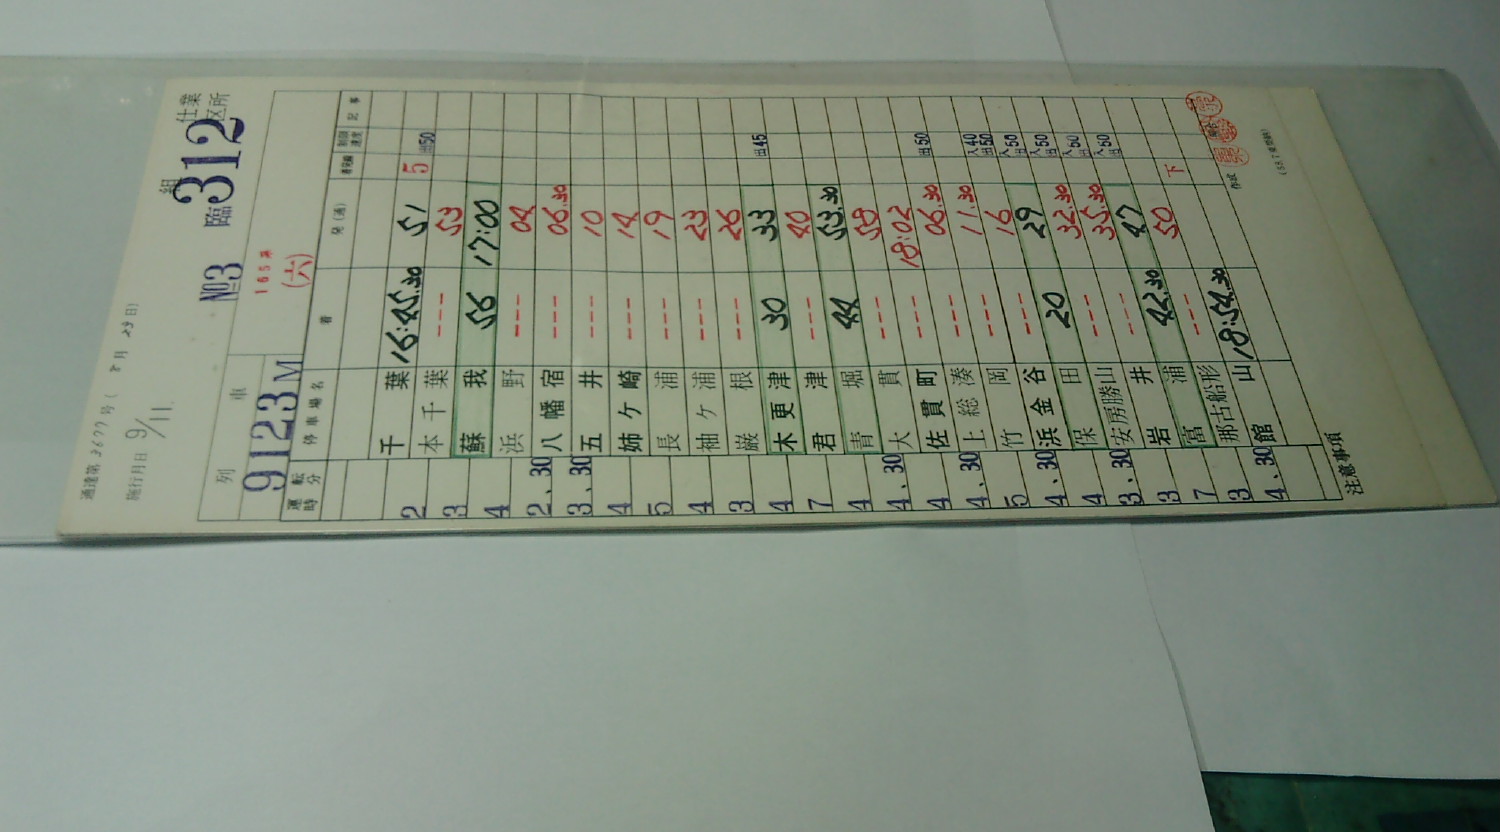 通達第3677号(8月29日)
施行月日 9/11
組 仕業
No.3 臨312 区所
列 車
9123M
165系
(六)
運転時分 停車場名 着 発(通) 着発線 制限速度 記事
千葉 16:45.30 51 5 出50
2
本千葉 --- 53
3
蘇我 56 17:00
4
浜野 --- 04
2.30
八幡宿 --- 06.30
3.30
五井 --- 10
4
姉ケ崎 --- 14
5
長浦 --- 19
4
袖ケ浦 --- 23
3
巌根 --- 26
4
木更津 30 33 出45
7
君津 --- 40
4
青堀 44 53.30
4.30
大貫 --- 58
4
佐貫町 --- 18:02
4.30
上総湊 --- 06.30 出50
5
竹岡 --- 11.30 入40 出50
4.30
浜金谷 --- 16 入出50
4
保田 20 29 入出50
3.30
安房勝山 --- 32.30 入出50
3
岩井 --- 35.30 入出50
7
富浦 42.30 47
3
那古船形 --- 50 下
4.30
館山 18:54.30
注意事項
作成